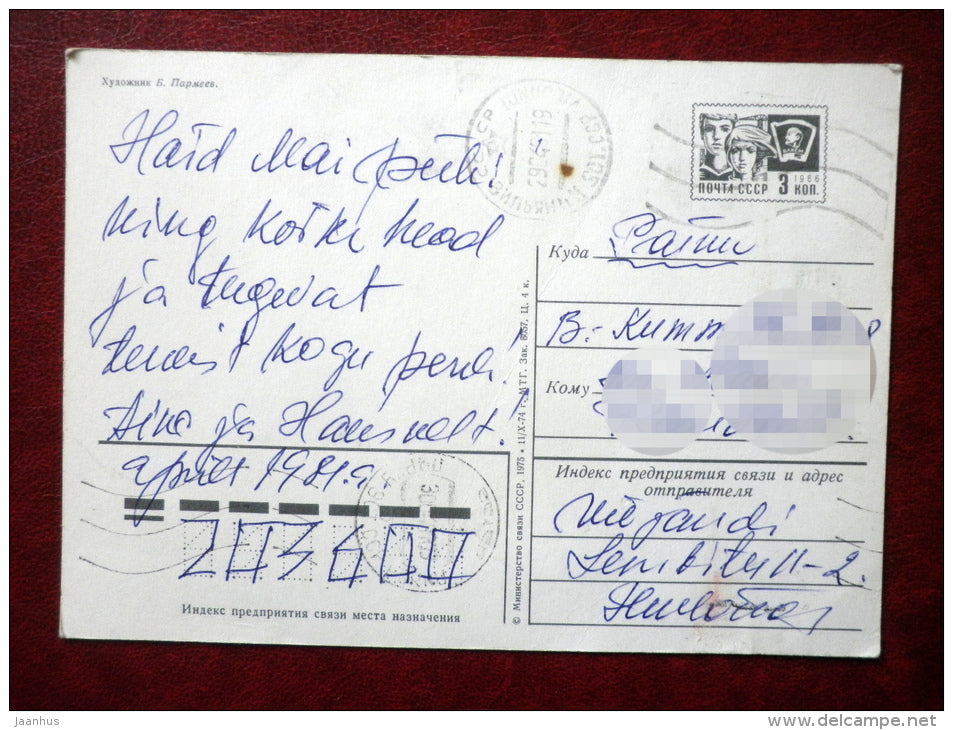 Художник Б. Пармеев.
Häid Maipühi
ning kõike head
ja tugevat
tervist kogu perele!
Aino ja Hansult.
aprill 1981.a.
203600
Индекс предприятия связи места назначения
© Министерство связи СССР, 1975 • 11/X-74 г. МТГ. Зак. 8057. Ц. 4 к.
ПОЧТА СССР 3 КОП.
1966
Куда Pärnu
В.-
Кому
Индекс предприятия связи и адрес
отправителя
Viljandi
Lembitu 11-2.
jaanhus
delcampe.net